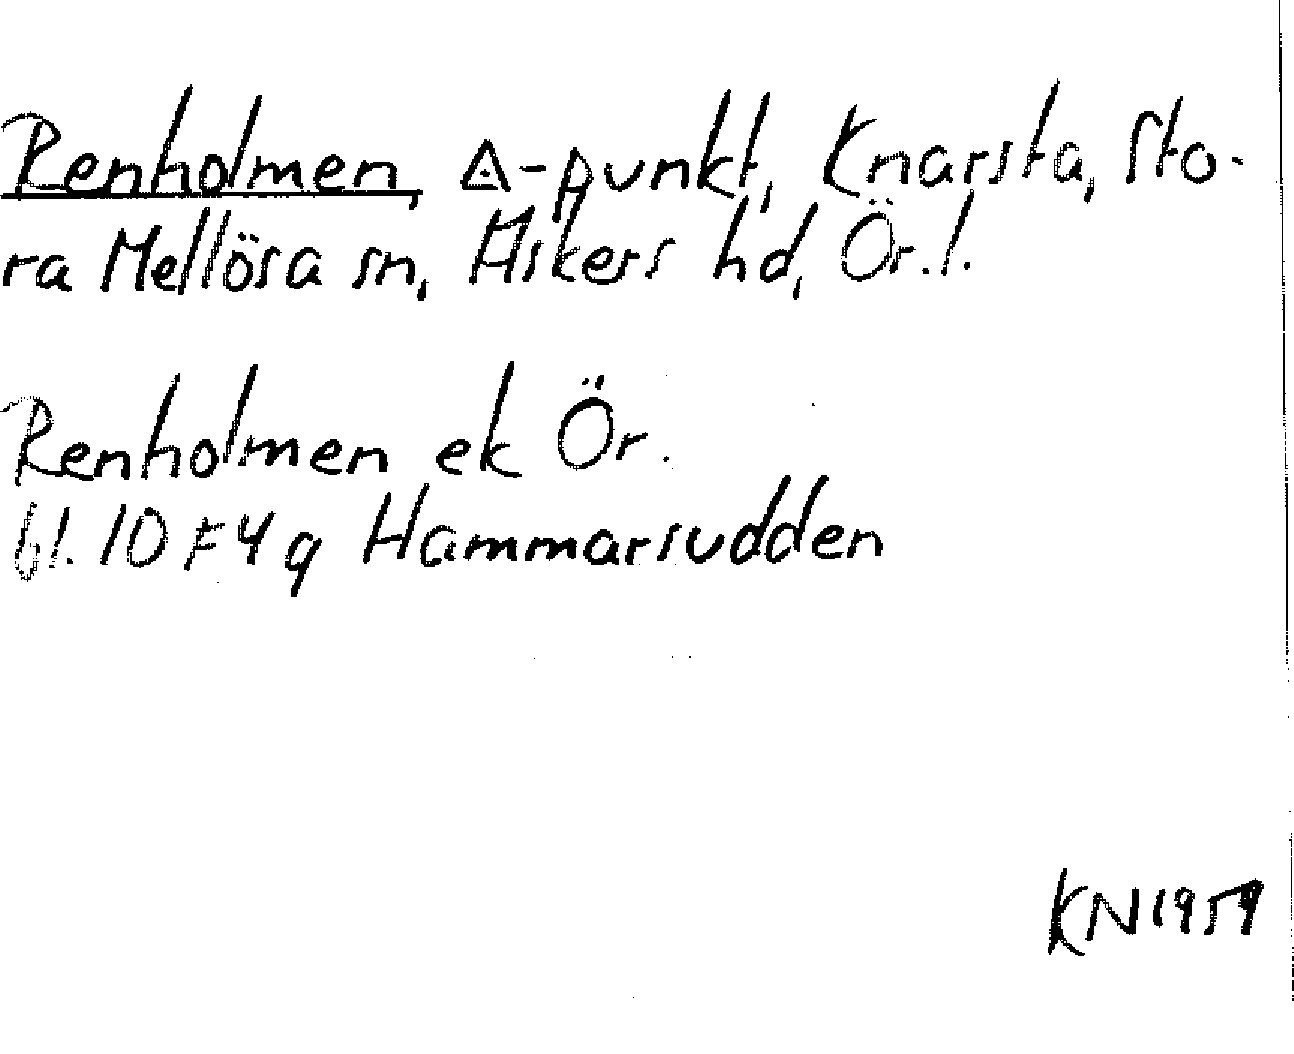 Renholmen, △-punkt, Knarsta, Sto-
ra Mellösa sn, Askers hd, Ör. l.
Renholmen ek Ör.
bl. 10 F 4 g Hammarsudden
KN 1959